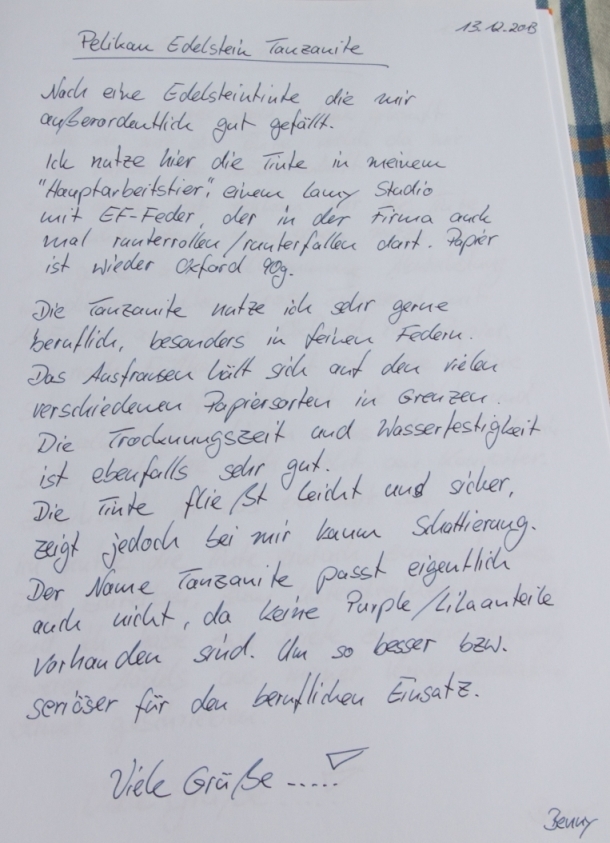 13.12.2013
Pelikan Edelstein Tanzanite
Noch eine Edelsteintinte die mir
außerordentlich gut gefällt.
Ich nutze hier die Tinte in meinem
"Hauptarbeitstier", einem Lamy Studio
mit EF-Feder, der in der Firma auch
mal runterrollen/runterfallen darf. Papier
ist wieder Oxford 90g.
Die Tanzanite nutze ich sehr gerne
beruflich, besonders in feinen Federn.
Das Ausfransen hält sich auf den vielen
verschiedenen Papiersorten in Grenzen.
Die Trocknungszeit und Wasserfestigkeit
ist ebenfalls sehr gut.
Die Tinte fließt leicht und sicher,
zeigt jedoch bei mir kaum Schattierung.
Der Name Tanzanite passt eigentlich
auch nicht, da keine Purple/Lilaanteile
vorhanden sind. Um so besser bzw.
seriöser für den beruflichen Einsatz.
Viele Grüße .....
Benny